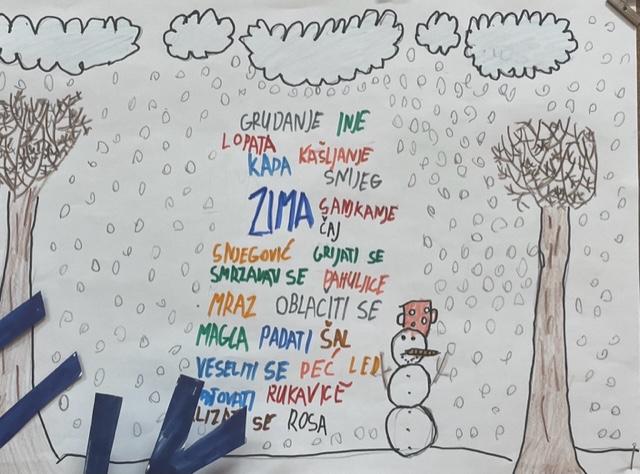 GRUDANJE INJE
LOPATA
KAŠLJANJE
KAPA
SNIJEG
ZIMA SANJKANJE
ČAJ
SNJEGOVIĆ GRIJATI SE
SMRZAVAV SE PAHULJICE
MRAZ OBLAČITI SE
MAGLA PADATI ŠAL
VESELITI SE PEĆ LED
RUKAVICE
SE ROSA